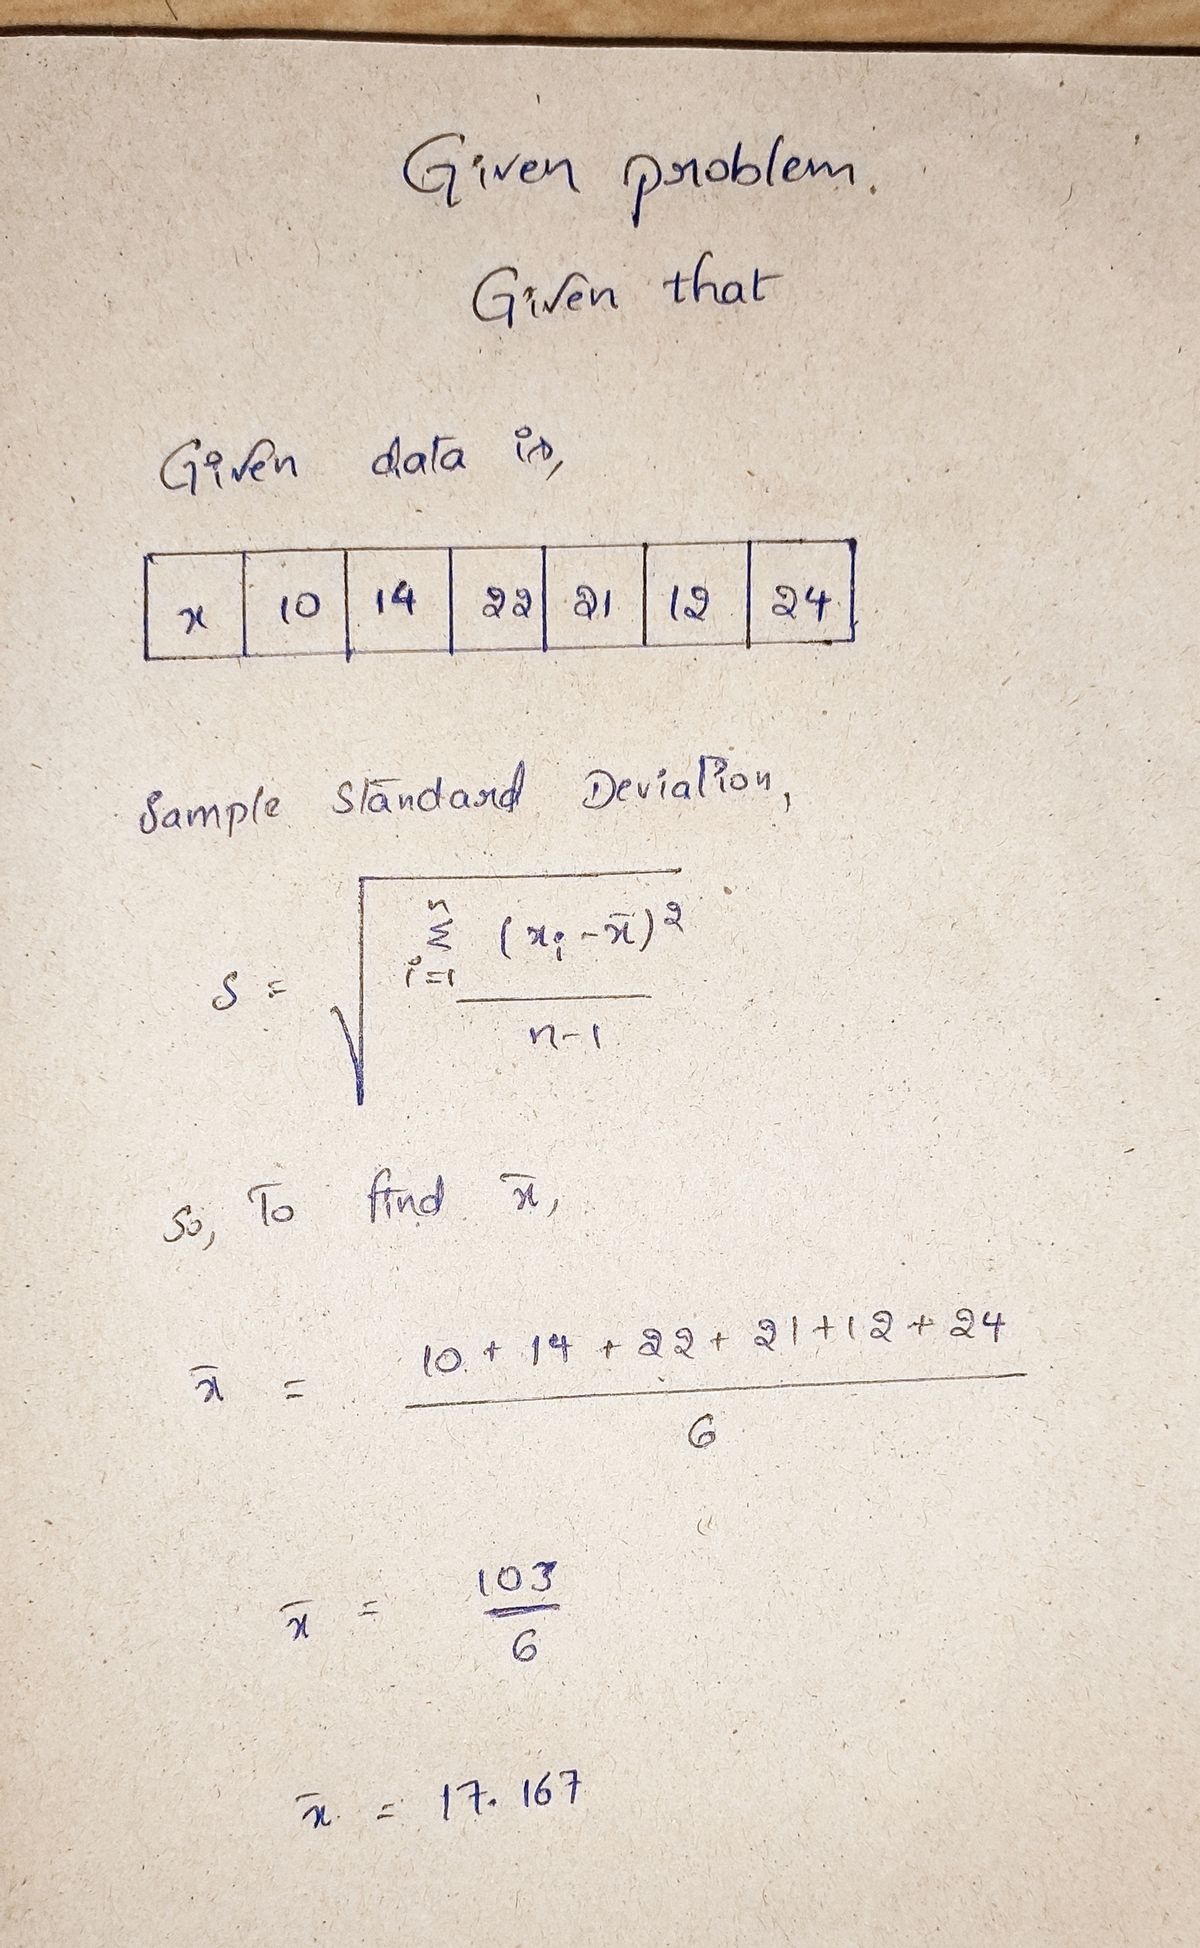 Given problem.
Given that
Given data is,
x 10 14 22 21 12 24
Sample Standard Deviation,
s = √( n Σ i=1 (xi - x̄)2 / n-1 )
So, To find x̄,
x̄ = 10 + 14 + 22 + 21 + 12 + 24 / 6
x̄ = 103 / 6
x̄ = 17.167